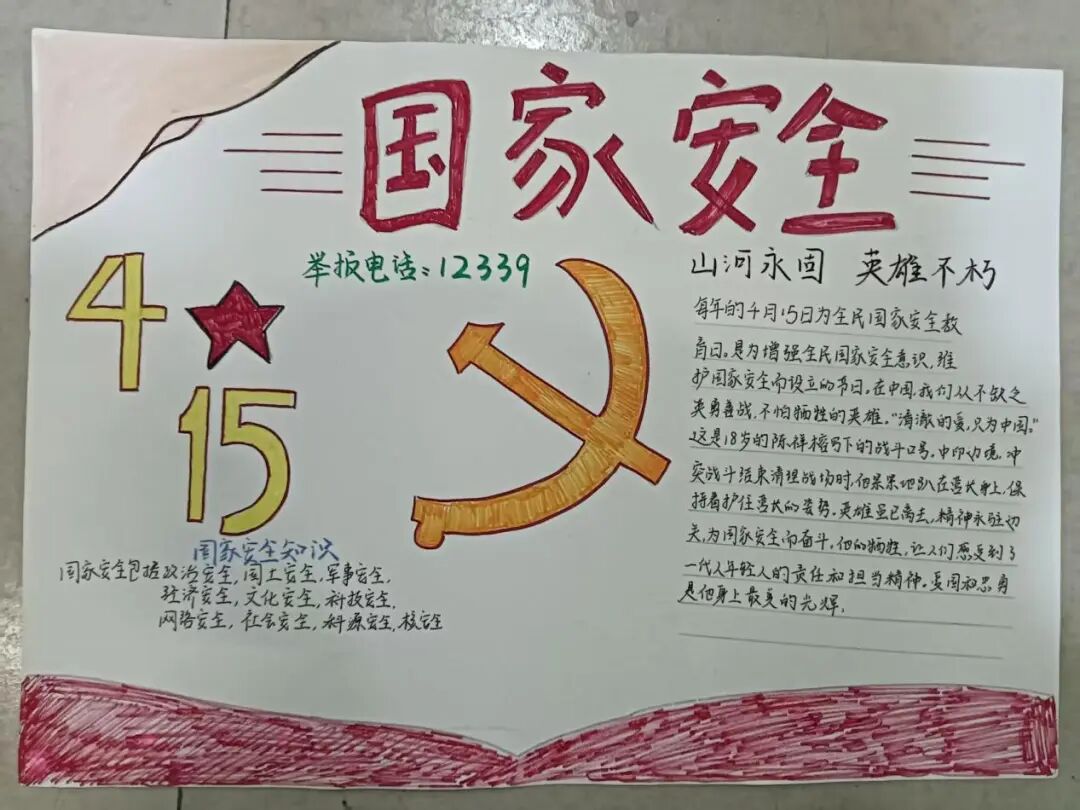 国家安全
举报电话:12339
4
15
山河永固 英雄不朽
每年的4月15日为全民国家安全教
育日。是为增强全民国家安全意识,维
护国家安全而设立的节日。在中国,我们从不缺乏
英勇善战,不怕牺牲的英雄。“清澈的爱,只为中国。”
这是18岁的陈祥榕写下的战斗口号。中印边境,冲
突战斗结束清理战场时,他紧紧地趴在营长身上,保
持着护住营长的姿势。英雄虽已离去,精神永驻边
关,为国家安全而奋斗,他的牺牲,让人们感受到了
一代人年轻人的责任和担当精神。爱国和忠勇
是他身上最美的光辉,
国家安全知识
国家安全包括政治安全,国土安全,军事安全,
经济安全,文化安全,科技安全,
网络安全,社会安全,科源安全,核安全